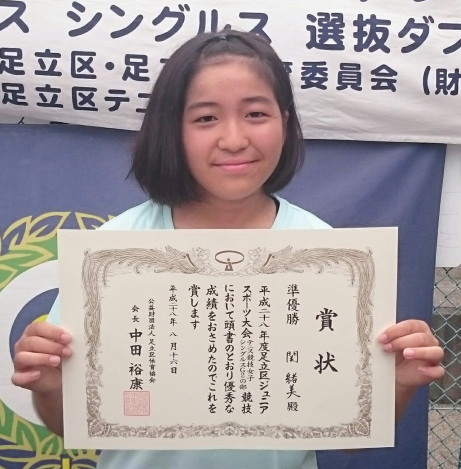 ス シングルス 選抜ダブ
足立区・足
委員会（財
足立区テニ
賞状
準優勝 関 緒美 殿
平成二十八年度足立区ジュニア
スポーツ大会 テニス競技女子 競技
において頭書のとおり優秀な
成績をおさめたのでこれを
賞します
平成二十八年 八月十六日
公益財団法人足立区体育協会
会長 中田 裕康